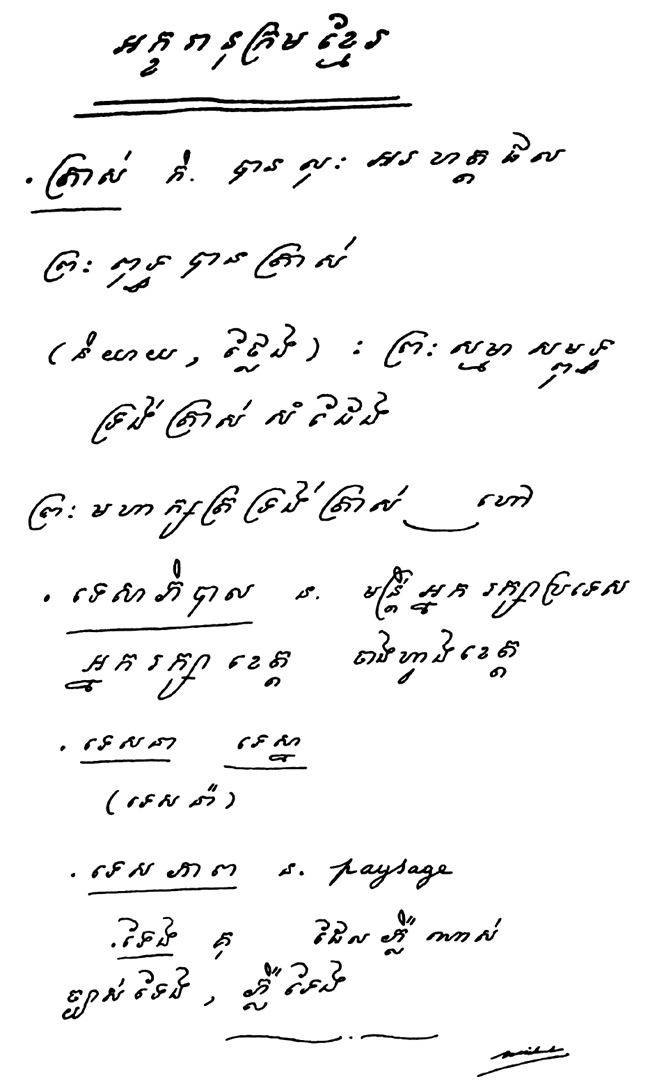 អក្ខរានុក្រមខ្មែរ
· ត្រាស់ កិ. បានលុះអរហត្តផល
ព្រះពុទ្ធបានត្រាស់
(និយាយ, ថ្លែង) : ព្រះសម្មាសម្ពុទ្ធ
ទ្រង់ត្រាស់សំដែង
ព្រះមហាក្សត្រទ្រង់ត្រាស់ ហៅ
· ទេសាភិបាល ន. មន្ត្រីអ្នករក្សាប្រទេស
អ្នករក្សាខេត្ត ចាងហ្វាងខេត្ត
· ទេសនា ទេស្នា
(ទេសន៉ា)
· ទេសភាព ន. paysage
· ទែង គុ ដែលភ្លឺណាស់
ច្បាស់ទែង, ភ្លឺទែង